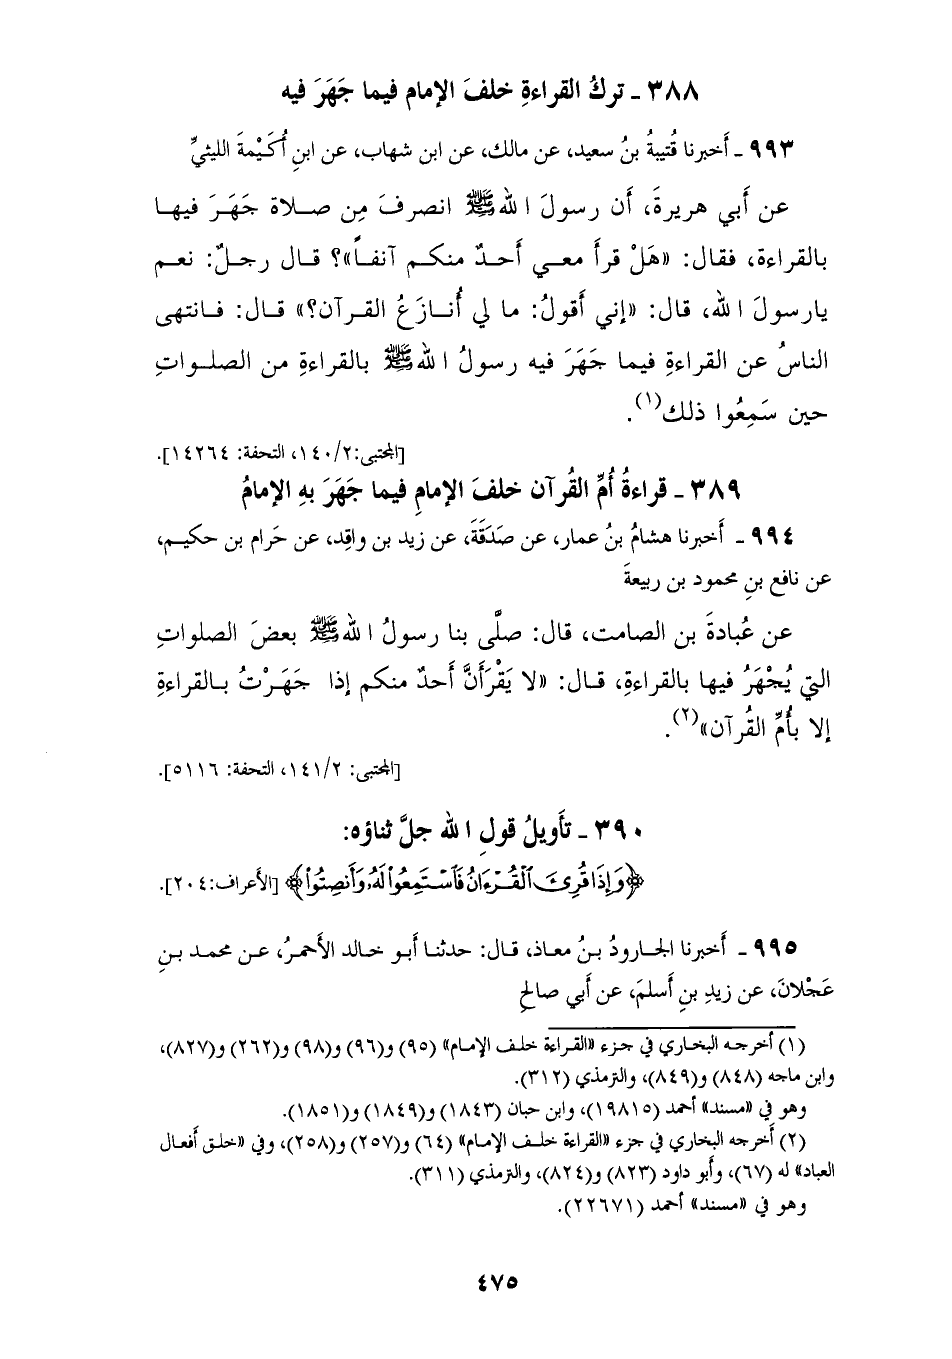 ٣٨٨ ـ تركُ القراءةِ خلفَ الإمام فيما جَهَرَ فيه
٩٩٣ ـ أَخبرنا قُتيبةُ بنُ سعيد، عن مالك، عن ابن شهاب، عن ابنِ أُكَيْمةَ الليثيِّ
عن أَبي هريرةَ، أن رسولَ اللهﷺ انصرفَ مِن صلاة جَهَرَ فيها
بالقراءة، فقال: «هَلْ قرأَ معي أَحدٌ منكم آنفاً»؟ قال رجلٌ: نعم
يارسولَ الله، قال: «إني أَقولُ: ما لي أُنازَعُ القرآن؟» قال: فانتهى
الناسُ عن القراءةِ فيما جَهَرَ فيه رسولُ اللهﷺ بالقراءةِ من الصلواتِ
حين سَمِعُوا ذلك(١).
[المجتبى:١٤٠/٢، التحفة: ١٤٢٦٤].
٣٨٩ ـ قراءةُ أُمِّ القُرآن خلفَ الإمامِ فيما جَهَرَ بهِ الإمامُ
٩٩٤ ـ أَخبرنا هشامُ بنُ عمار، عن صَدَقَةَ، عن زيد بن واقِد، عن حَرام بن حكيم،
عن نافع بنِ محمود بن ربيعةَ
عن عُبادةَ بن الصامت، قال: صلَّى بنا رسولُ اللهﷺ بعضَ الصلواتِ
التي يُجْهَرُ فيها بالقراءةِ، قال: «لا يَقْرَأَنَّ أَحدٌ منكم إذا جَهَرْتُ بالقراءةِ
إلا بأُمِّ القُرآن»(٢).
[المجتبى: ١٤١/٢، التحفة: ٥١١٦].
٣٩٠ ـ تأويلُ قولِ الله جلَّ ثناؤه:
﴿وَإِذَا قُرِئَ ٱلْقُرْءَانُ فَٱسْتَمِعُوا۟ لَهُۥ وَأَنصِتُوا۟﴾ [الأعراف:٢٠٤].
٩٩٥ ـ أَخبرنا الجارودُ بنُ معاذ، قال: حدثنا أَبو خالد الأَحمرُ، عن محمد بنِ
عَجْلانَ، عن زيدِ بنِ أَسلمَ، عن أَبي صالحٍ
(١) أخرجه البخاري في جزء «القراءة خلف الإمام» (٩٥) و(٩٦) و(٩٨) و(٢٦٢) و(٨٢٧)،
وابن ماجه (٨٤٨) و(٨٤٩)، والترمذي (٣١٢).
وهو في «مسند» أحمد (١٩٨١٥)، وابن حبان (١٨٤٣) و(١٨٤٩) و(١٨٥١).
(٢) أخرجه البخاري في جزء «القراءة خلف الإمام» (٦٤) و(٢٥٧) و(٢٥٨)، وفي «خلق أفعال
العباد» له (٦٧)، وأبو داود (٨٢٣) و(٨٢٤)، والترمذي (٣١١).
وهو في «مسند» أحمد (٢٢٦٧١).
٤٧٥